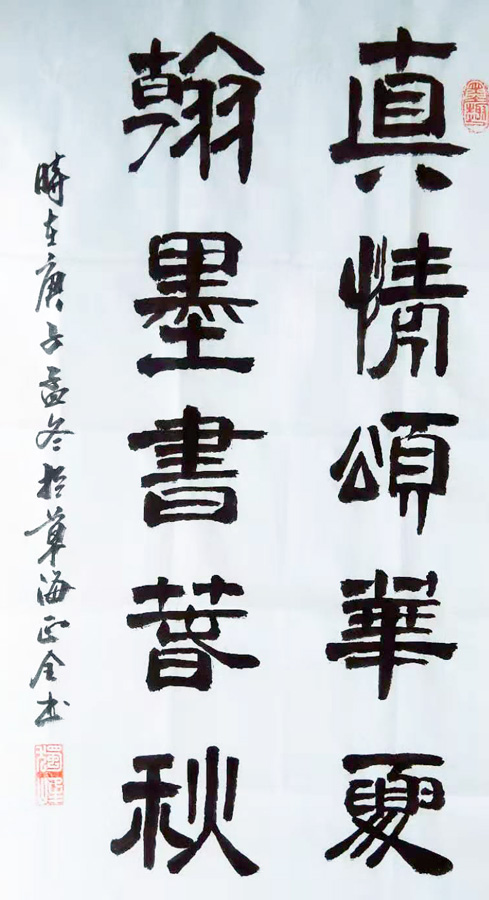 真情頌華夏
翰墨書萅秋
時在庚子孟冬於草海正全书